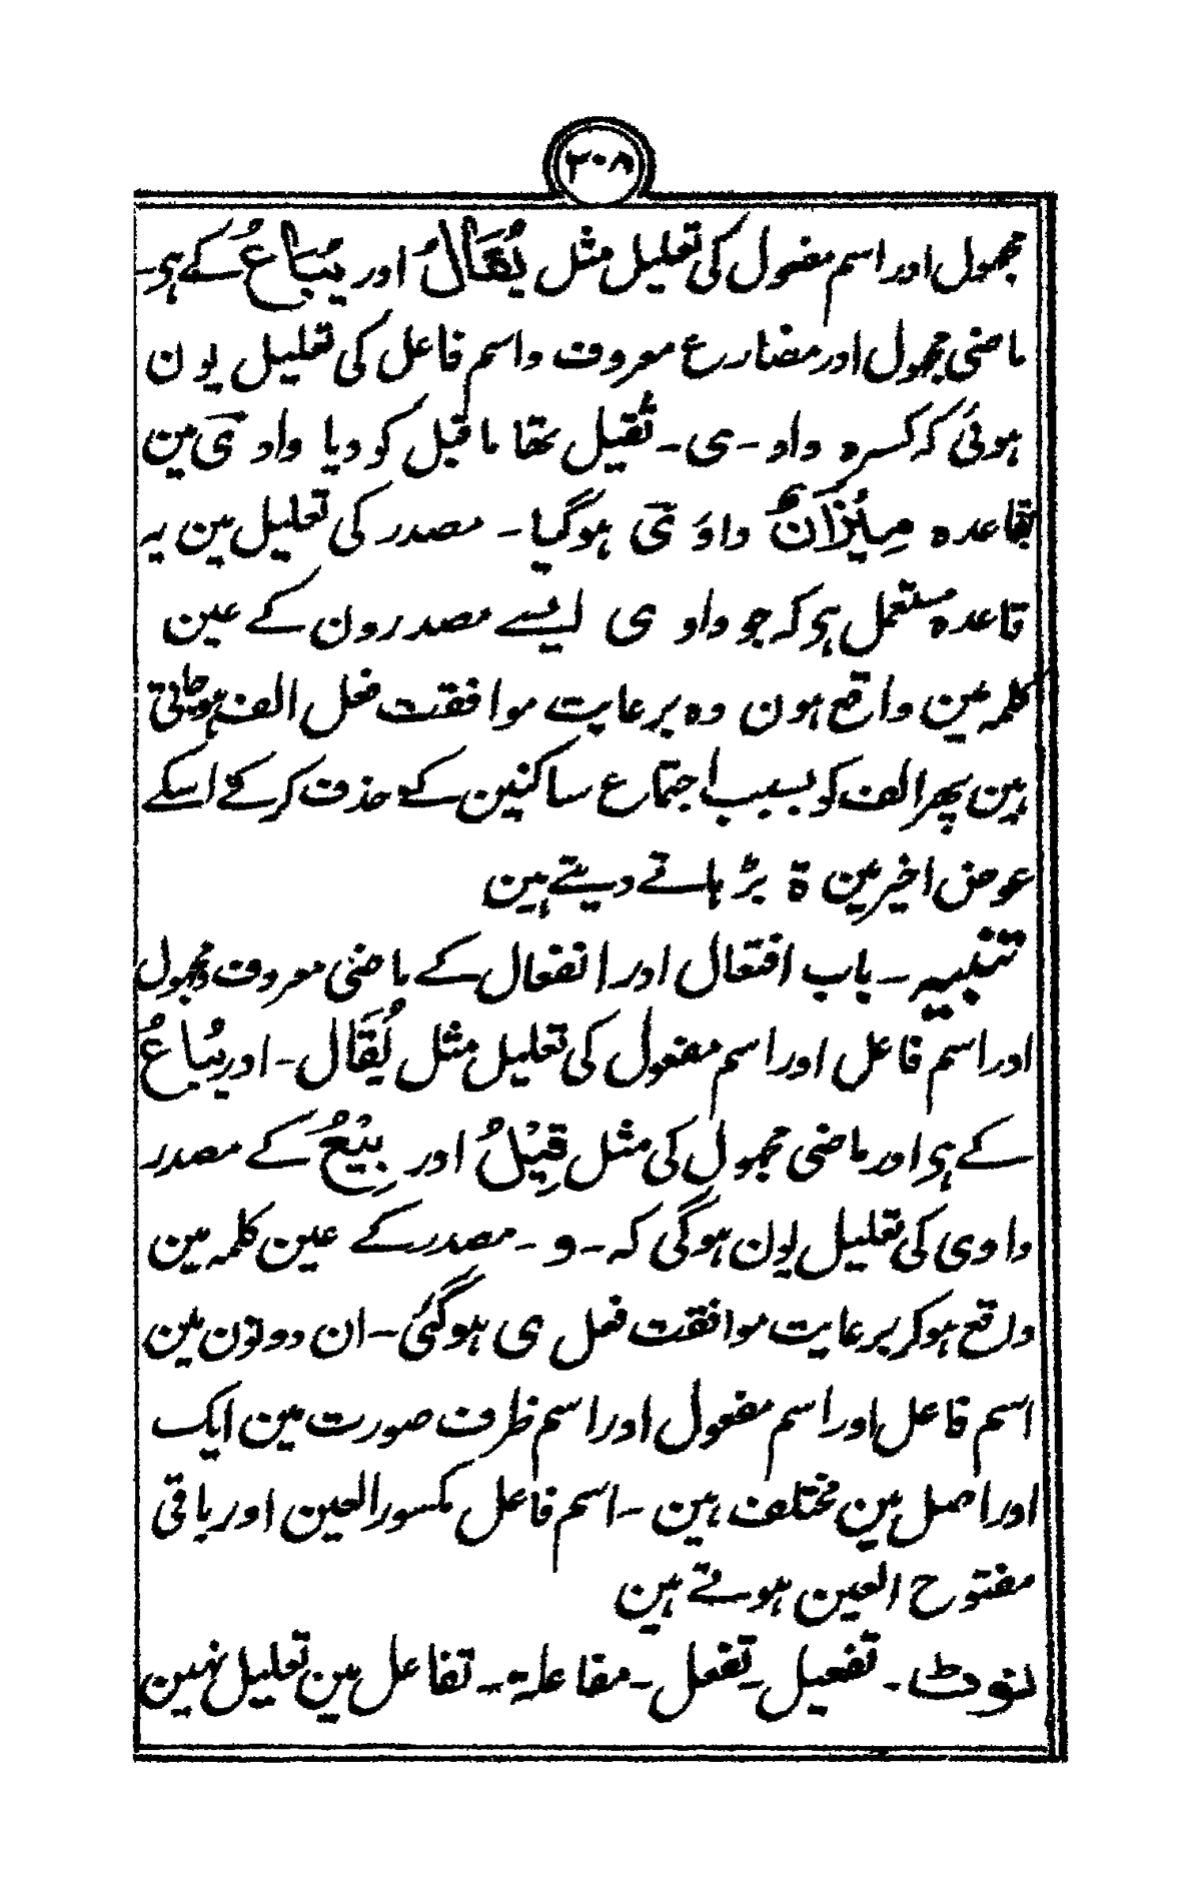 ۳۰۸
مجهول اور اسم مفعول کی تعلیل مثل یُقَالُ اور یُبَاعُ کے ہی۔
ماضی مجهول اور مضارع معروف و اسم فاعل کی تعلیل یون
ہوئی کہ کسرہ واو ۔ ی ۔ ثقیل تھا ماقبل کو دیا واو ی مین
بقاعدہ مِیْزَانٌ واو ی ہو گیا ۔ مصدر کی تعلیل مین یہ
قاعدہ مستعمل ہی کہ جو واو ی ایسے مصدرون کے عین
کلمہ مین واقع ہون وہ برعایت موافقت فعل الف ہو جاتی
ہین پھر الف کو بسبب اجتماع ساکنین کے حذف کر کے اسکے
عوض اخیر مین ة بڑہاتے دیتے ہین
تنبیہ ۔ باب افتعال اور انفعال کے ماضی معروف و مجهول
اور اسم فاعل اور اسم مفعول کی تعلیل مثل یُقَالُ ۔ اور یُبَاعُ
کے ہی اور ماضی مجهول کی مثل قِیْلُ اور بِیْعُ کے مصدر
واوی کی تعلیل یون ہوگی کہ ۔ و ۔ مصدر کے عین کلمہ مین
واقع ہو کر برعایت موافقت فعل ی ہو گئی ۔ ان دونون مین
اسم فاعل اور اسم مفعول اور اسم ظرف صورت مین ایک
اور اصل مین مختلف ہین ۔ اسم فاعل مکسور العین اور باقی
مفتوح العین ہوتے ہین
نوٹ ۔ تفعیل ۔ تفعل ۔ مفاعلة ۔ تفاعل مین تعلیل نہین